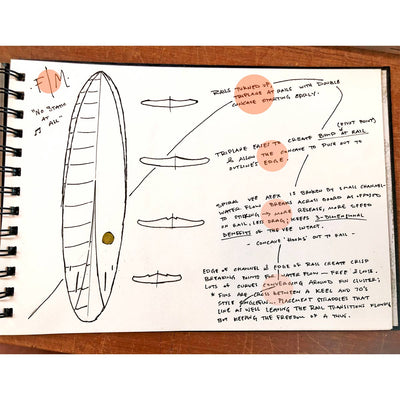 F/M.
"No Static
at
All"
Rails turned up,
triplane at rails with double
concave starting early.
Triplane eases to create bend at rail (pivot point)
& allow the concave to push out to
outline's edge.
Spiral vee apex is broken by small channel-
water flow breaks across board as opposed
to sticking → more release, more speed
on rail, less drag; keeps 3-dimensional
benefits of the vee intact.
- concave 'holds' out to rail -
Edge of channel & edge of rail create crisp
breaking points for water flow — free & loose.
Lots of curves converging around fin cluster;
* Fins are cross between a keel and 70's
style single fin... placement straddles that
line as well leaving the rail transitions flowing
but keeping the freedom of a thus.